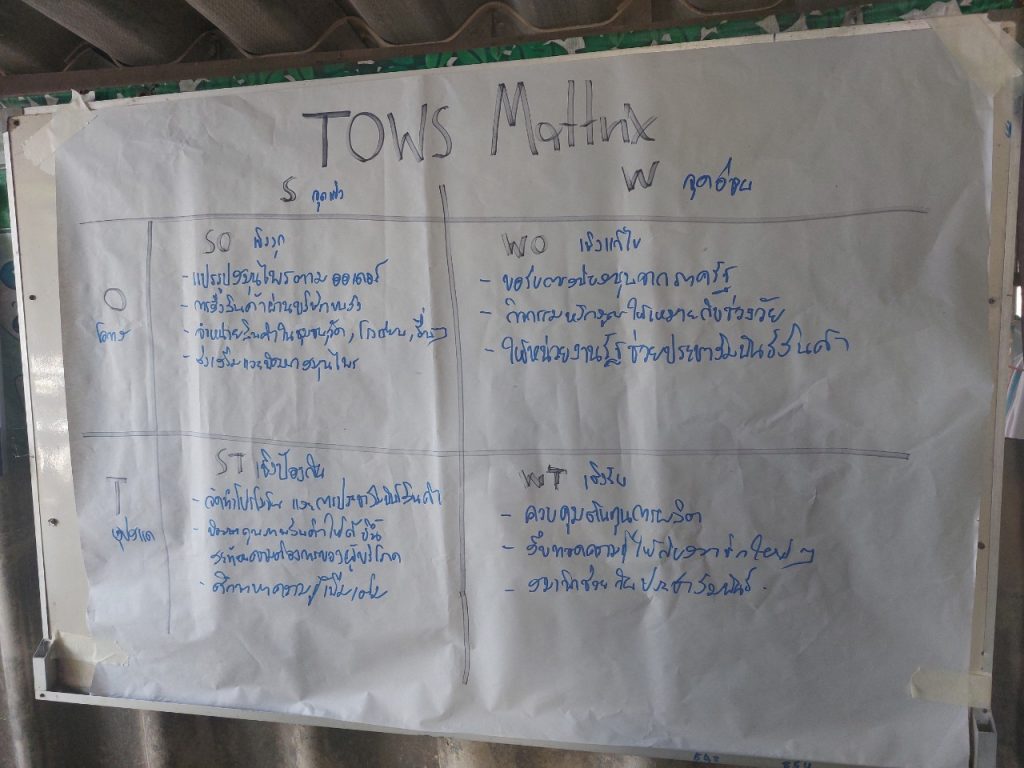 TOWS Mattrix
S จุดแข็ง
W จุดอ่อน
O
โอกาส
SO เชิงรุก
- แปรรูปสมุนไพรตาม ออเดอร์
- การส่งสินค้าผ่านบริษัทขนส่ง
- จำหน่ายสินค้าในชุมชน, วัด, โรงเรียน, อื่นๆ
- ส่งเสริมและพัฒนาสมุนไพร
WO เชิงแก้ไข
- ขอรับการสนับสนุนจากภาครัฐ
- กิจกรรม ให้เหมาะกับช่วงวัย
- ให้หน่วยงานรัฐ ช่วยประชาสัมพันธ์สินค้า
T
อุปสรรค
ST เชิงป้องกัน
- จัดทำโปรโมชั่น และการประชาสัมพันธ์สินค้า
- พัฒนาคุณภาพสินค้าให้ดีขึ้น
ความต้องการของผู้บริโภค
- ศึกษาหาความรู้เพิ่มเติม
WT เชิงรับ
- ควบคุมต้นทุนการผลิต
- สืบทอดความรู้ให้กับสมาชิกใหม่ ๆ
- สมาชิกช่วยกันประชาสัมพันธ์